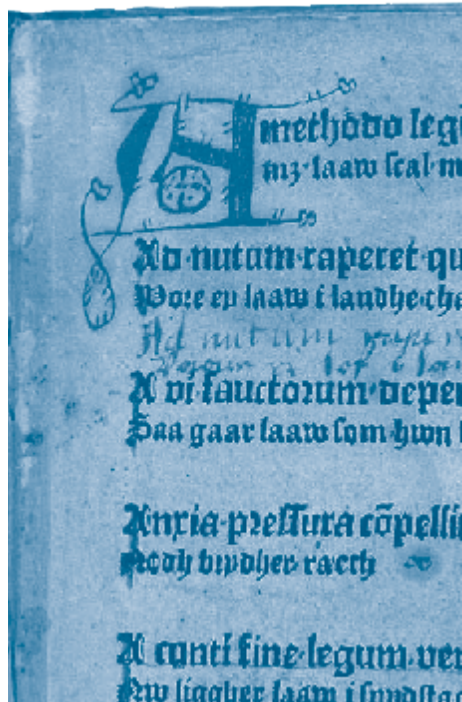 A methodo leg
mz·laaw scal m
Ad·nutum·raperet·qu
Wore ey laaw i landhe tha
Ad nutum rape
A vi fauctorum·depe
Saa gaar laaw som·hwn
Anxia·pressura cõpelli
Nodh brydher rætth
A conti fine·legum·ver
Nw liggher laaw i